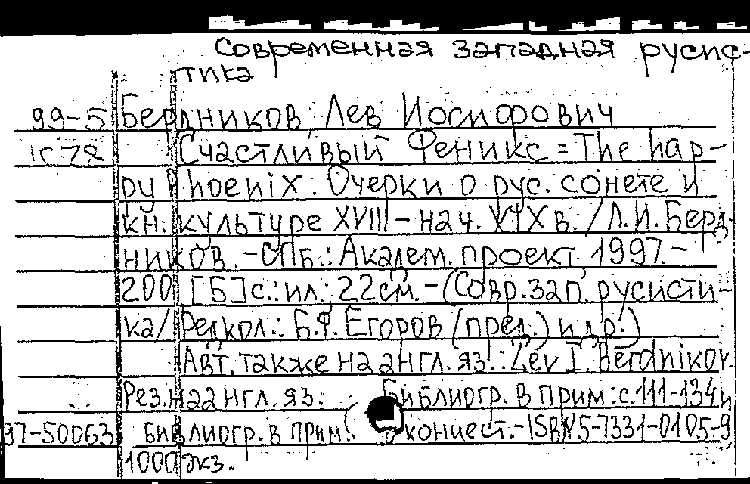 Современная западная русис-
тика
99-5 Бердников, Лев Иосифович
1678 Счастливый Феникс = The hap-
py Phoenix. Очерки о рус. сонете и
кн. культуре XVIII - нач. XIX в. / Л.И. Берд-
ников. - СПб.: Академ. проект, 1997. -
200 [Б] с.: ил.; 22 см. - (Совр. зап. русисти-
ка / Редкол.: Б.Ф. Егоров (пред.) и др.)
Авт. также на англ. яз.: Lev I. Berdnikov.
Рез. на англ. яз. Библиогр. в прим.: с. 111-134 и
97-50063 библиогр. в прим. в конце ст. - ISBN 5-7331-0105-9
1000 экз.